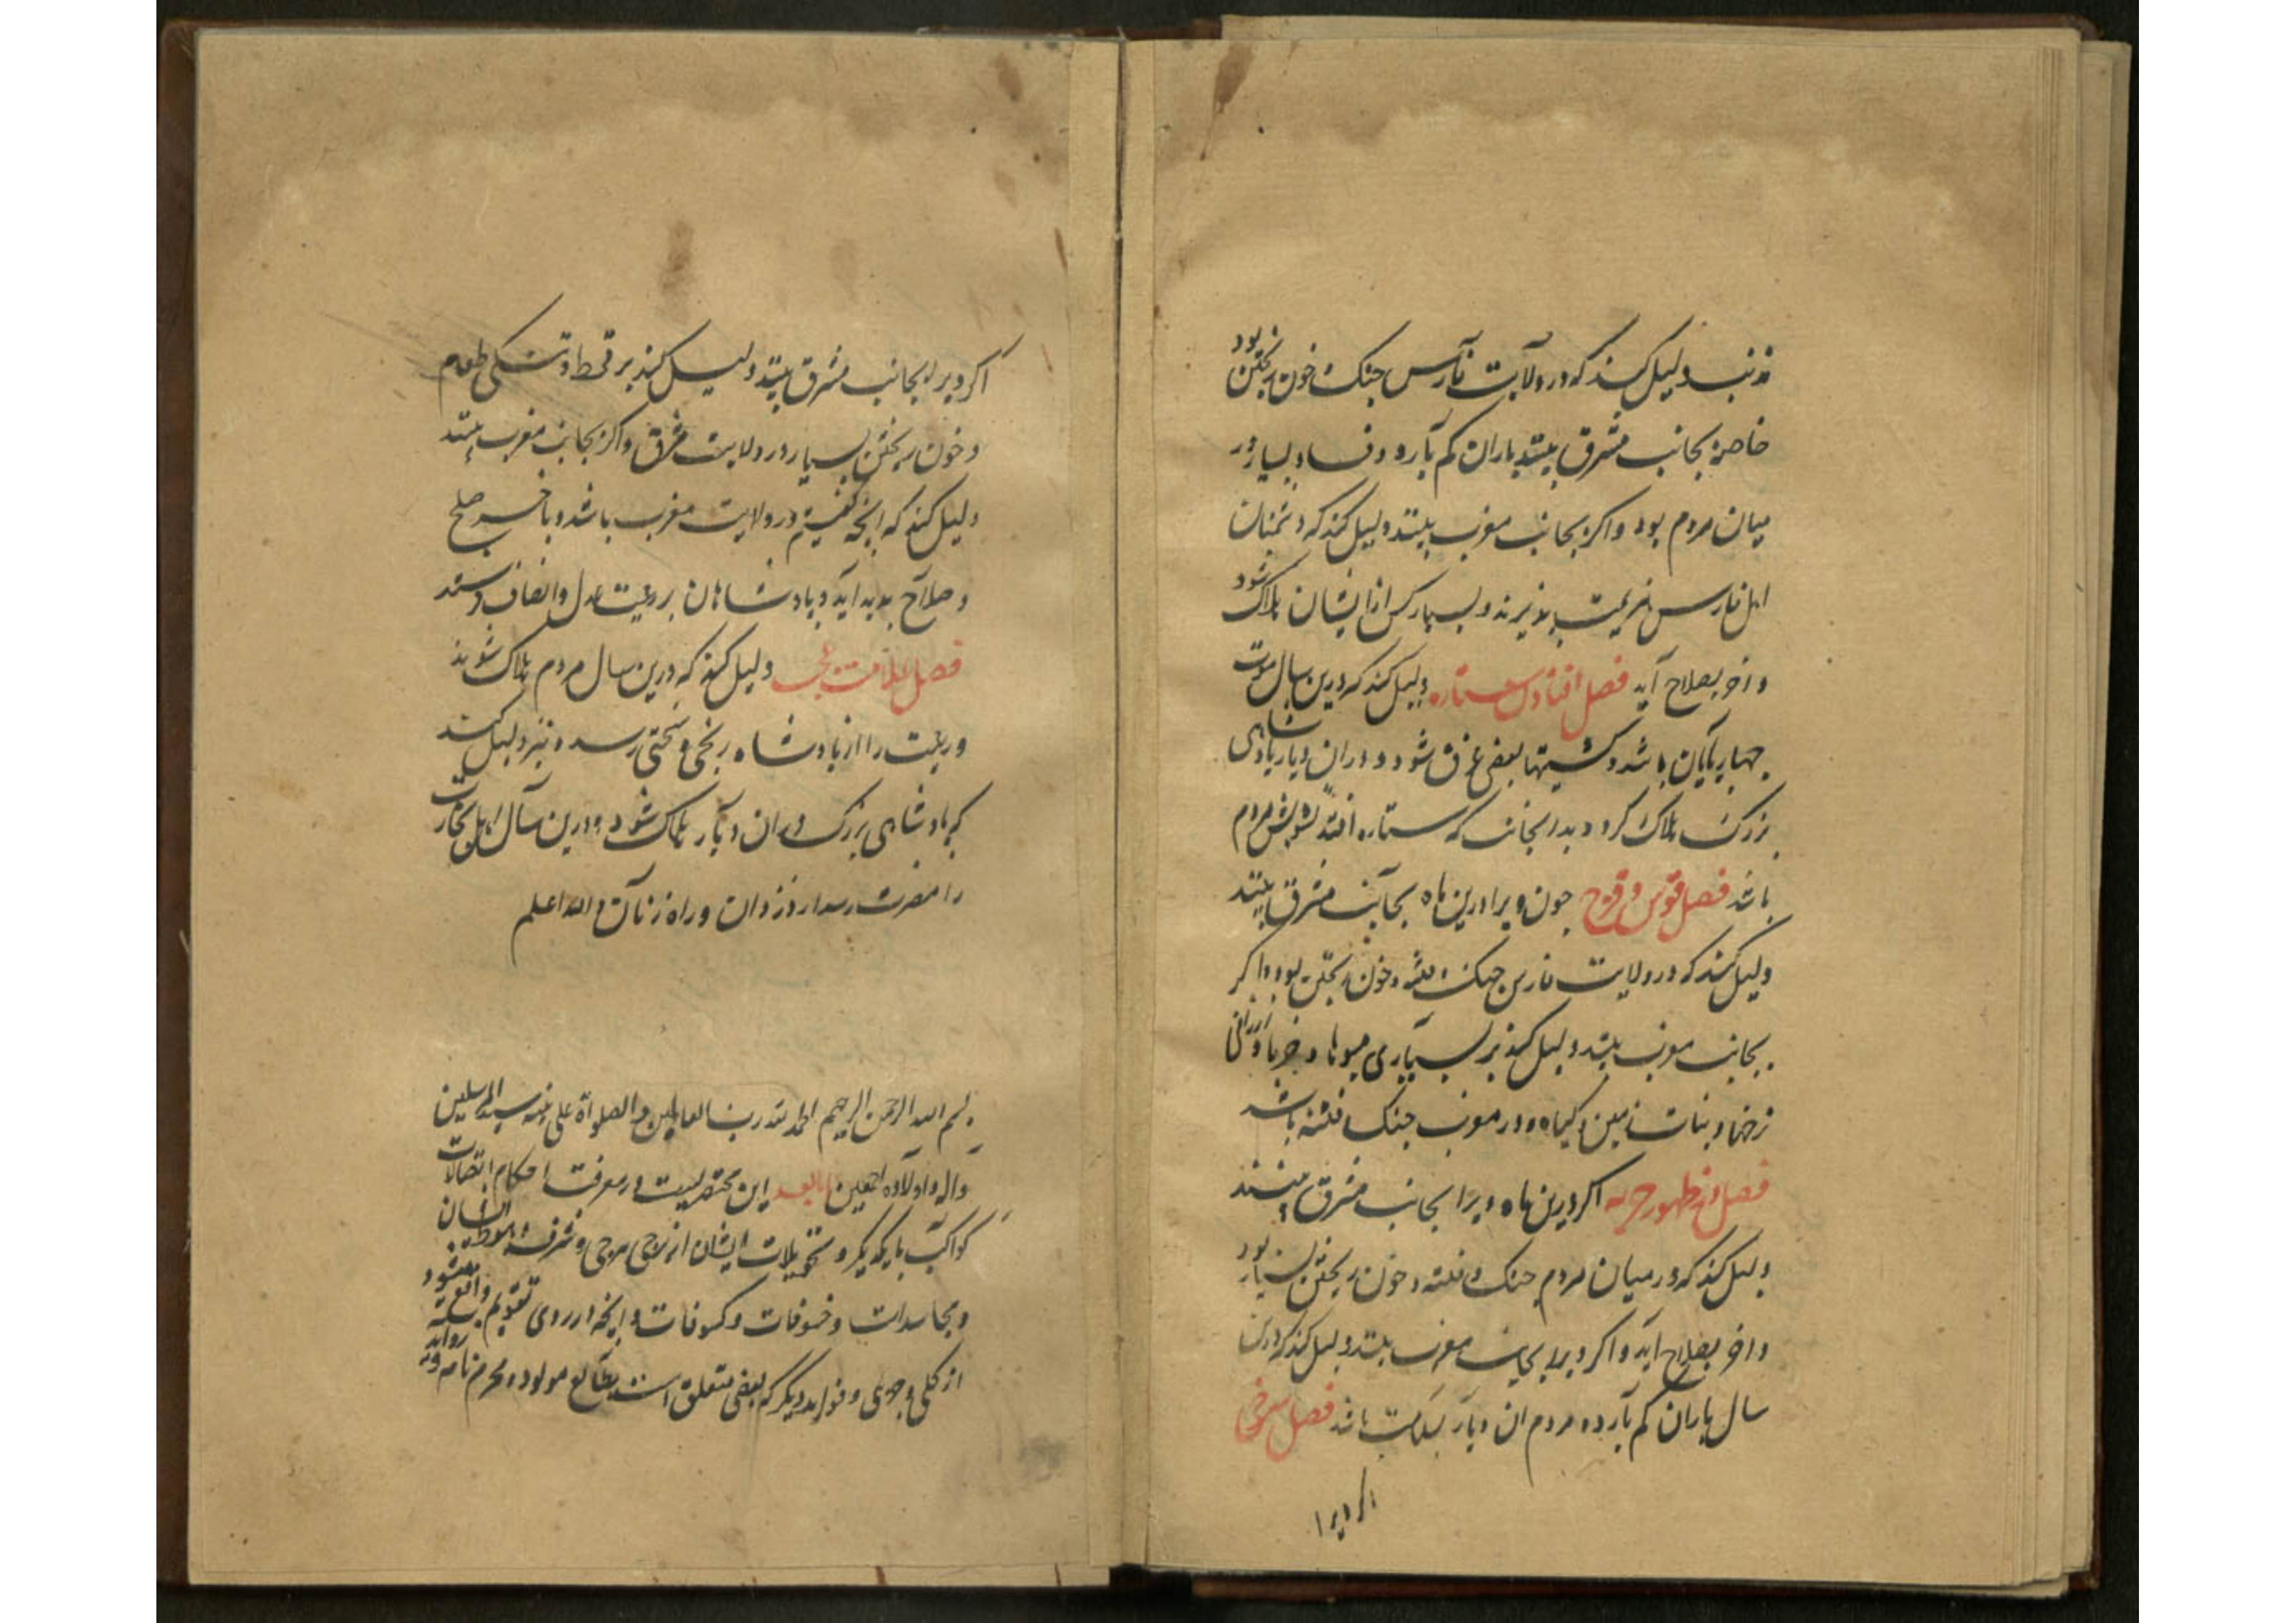 ذنب دلیل کند که در ولایت فارس جنک و خون ریختن بود
خاصه بجانب مشرق بیند باران کم بارد و فساد بسیار در
میان مردم بود و اکر بجانب مغرب بیند دلیل کند که دشمنان
اهل فارس هزیمت پذیرند و بسیار کس از ایشان هلاک شود
و اخر بصلاح آید فصل افتادن ستاره دلیل کند که درین سال موت
چهارپایان باشد و کشتیها بعضی غرق شود و در ان دیار پادشاهی
بزرک هلاک کردد و بدانجانب که ستاره افتد تشویش مردم
باشد فصل قوس و قزح چون ویرا درین ماه بجانب مشرق بیند
دلیل کند که در ولایت فارس جنک و فتنه و خون ریختن بود و اکر
بجانب مغرب بیند دلیل کند بر بسیاری میوها و خرما و ارزانی
نرخها و نبات زمین و کیاه و در مغرب جنک و فتنه باشد
فصل در ظهور حربه اکر درین ماه ویرا بجانب مشرق بینند
دلیل کند که در میان مردم جنک و فتنه و خون ریختن بسیار بود
و اخر بصلاح اید و اکر ویرا بجانب مغرب بیند دلیل کند که درین
سال باران کم بارد و مردم ان دیار بسلامت باشد فصل سرخی
اکر ویرا
اکر ویرا بجانب مشرق بیند دلیل کند بر قحط و تنکی طعام
و خون ریختن بسیار در ولایت مشرق و اکر بجانب مغرب بیند
دلیل کند که انچه کفتیم در ولایت مغرب باشد و باخر صلح
و صلاح پدید آید و پادشاهان بر رعیت عدل و انصاف
فصل علامت دلیل کند که درین سال مردم هلاک شوند
و رعیت را از پادشاه رنجی و سختی رسد و نیز دلیل کند
که پادشاهی بزرک در ان دیار هلاک شود و درین سال اهل تجارت
را مضرت رسد از دزدان و راه زنان و الله اعلم
بسم الله الرحمن الرحیم الحمد لله رب العالمین و الصلواة علی نبیه سید المرسلین
و آله و اولاده اجمعین اما بعد این مختصریست در معرفت احکام اتصالات
کواکب با یکدیکر و تحویلات ایشان از برجی ببرجی و شرف و هبوط ایشان
و مجاسدات و خسوفات و کسوفات و انچه از روی تقویم واقع میشود
از کلی و جزوی و فواید دیکر که بعضی متعلق است بطالع مولود و محرم نامه